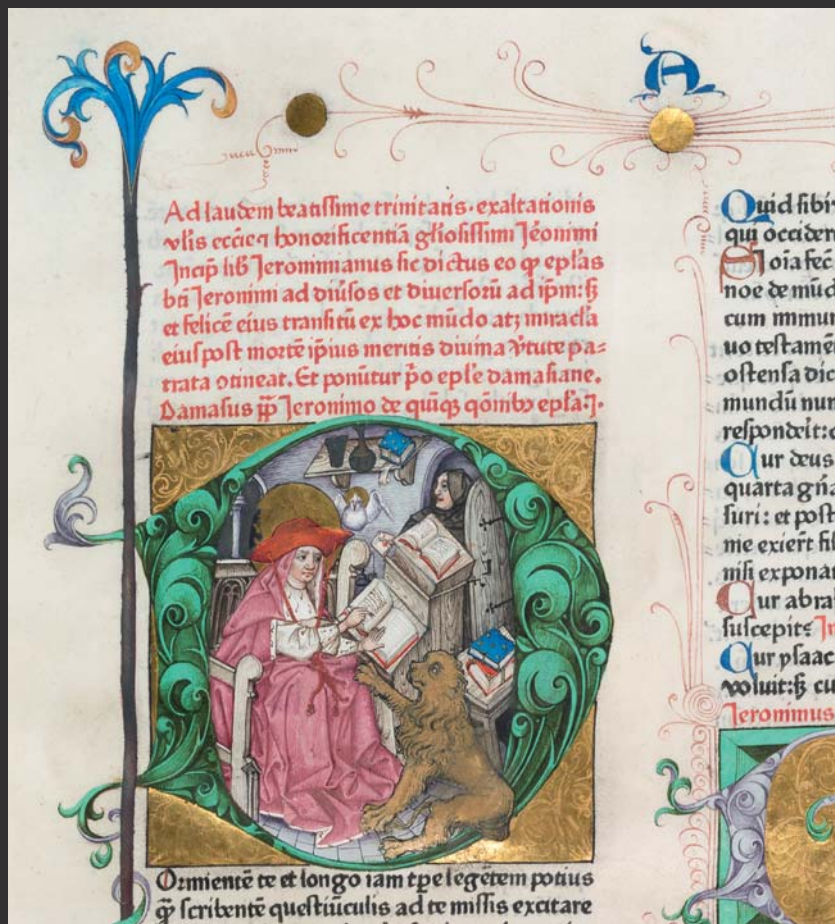 A
Ad laudem beatissime trinitatis. exaltationis
vlis eccĩe ⁊ honorificentiã glĩosissimi Jẽonimi
Jncip̃ lib̃ Jeronimianus sic dictus eo ꝙ ep̃las
bt̃i Jeronimi ad diũsos et diuersorũ ad ip̃m: s̃ꝫ
et felicẽ eius transitũ ex hoc mũdo atꝫ miracl̃a
eius post mortẽ ip̃ius meritis diuina ṽtute pa=
trata ꝯtineat. Et ponũtur p̃o ep̃le damasiane.
Damasus pp̃ Jeronimo de quĩqꝫ q̃onibꝰ ep̃laꝝ.
Ormientẽ te et longo iam tp̃e legẽtem potius
q̃ꝫ scribentẽ questiũculis ad te missis excitare
Quid sibi
qui occider
Si oĩa fec
noe de mũd
cum immun
uo testamẽ
ostensa dic
mundũ nun
respondeit:
Cur deus
quarta gñã
suri: et post
me exiẽrt fil
nisi exponan
Cur abra
suscepit: Jn
Cur ysaac
voluit: s̃ꝫ cu
Jeronimus